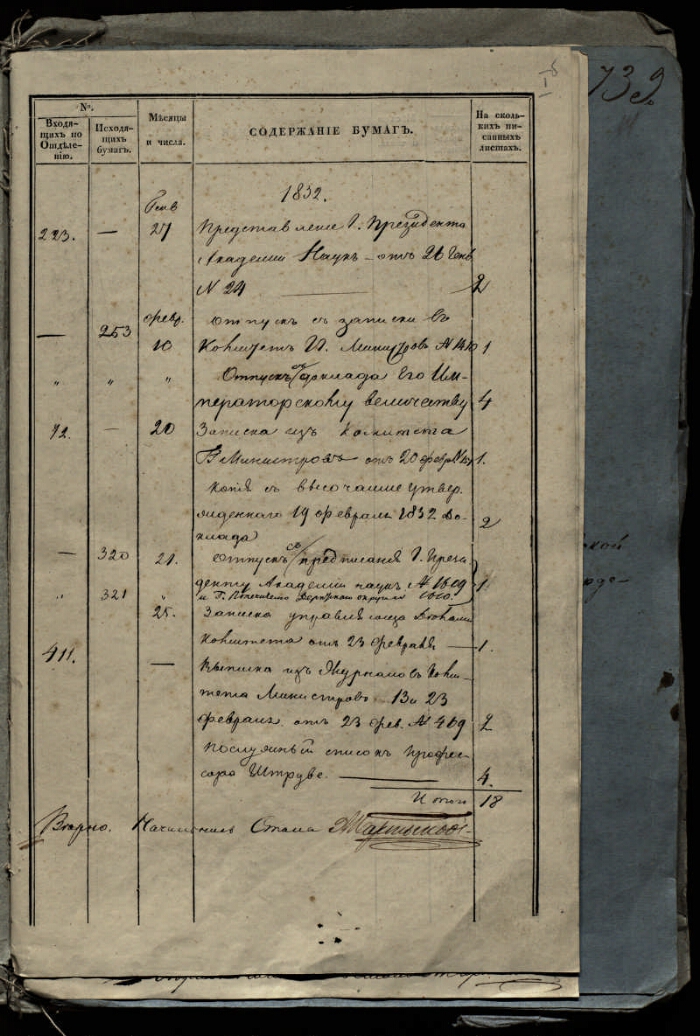 739.
№.
Входящихъ по Отдѣленію.
Исходящихъ бумагъ.
Мѣсяцы и числа.
СОДЕРЖАНІЕ БУМАГЪ.
На сколькихъ писанныхъ листахъ.
1832.
Генв
223. — 27 Представленіе Г. Президента
Академіи Наукъ — отъ 26 Генв
№ 24 — 2
— 253 февр. Отпускъ съ записки въ
10 Комитетъ Гг. Министровъ № 1410 1
" " " Отпускъ съ доклада Его Им-
ператорскому величеству 4
72. — 20 Записка изъ Комитета
Министровъ отъ 20 февр. 1.
Копія съ высочайше утвер-
жденнаго 19 февраля 1832 До-
клада 2
— 320 21. Отпускъ съ предписанія Г. Прези-
денту Академіи наукъ № 1609 1
" 321 " и Г. Попечителю Дерптскаго округа 1610.
25. Записка управляющаго дѣлами
Комитета отъ 23 февраля — 1.
411. — Выписка изъ Журналовъ Коми-
тета Министровъ 13 и 23
февраля. отъ 23 фев. № 469 2
Послужный списокъ Профес-
сора Штруве. — 4.
Итого 18
Вѣрно. Начальникъ Стола
ской